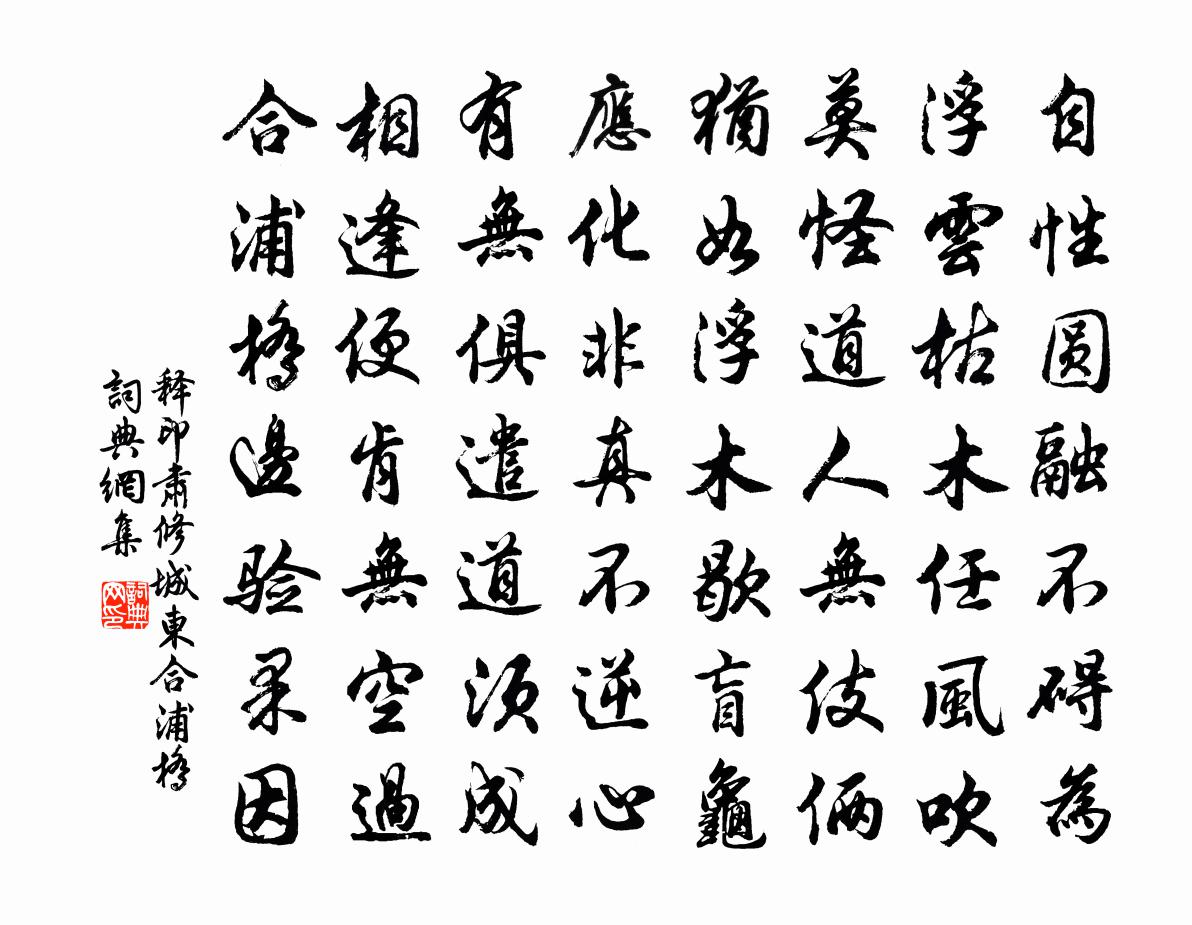 自性圆融不碍為
浮雲枯木任風吹
莫怪道人無伎俩
猶如浮木歇盲龜
應化非真不逆心
有無俱遣道須成
相逢便肯無空過
合浦橋邊验果因
释印肅修城東合浦橋
詞典網集
詞典网印